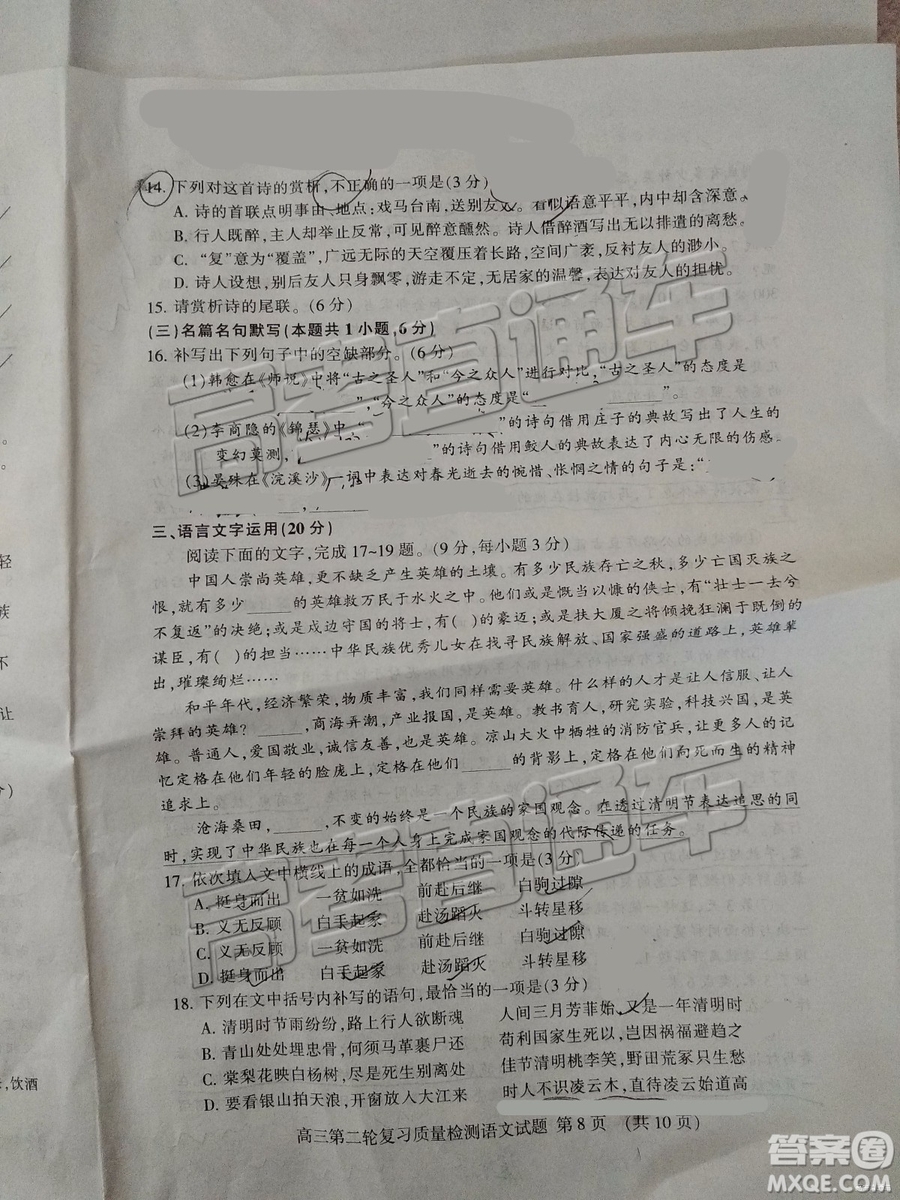 14. 下列对这首诗的赏析,不正确的一项是(3分)
A. 诗的首联点明事由、地点:戏马台南,送别友人。看似语意平平,内中却含深意。
B. 行人既醉,主人却举止反常,可见醉意醺然。诗人借醉酒写出无以排遣的离愁。
C. “复”意为“覆盖”,广远无际的天空覆压着长路,空间广袤,反衬友人的渺小。
D. 诗人设想,别后友人只身飘零,游走不定,无居家的温馨,表达对友人的担忧。
15. 请赏析诗的尾联。(6分)
(三)名篇名句默写(本题共1小题,6分)
16. 补写出下列句子中的空缺部分。(6分)
(1)韩愈在《师说》中将“古之圣人”和“今之众人”进行对比,“古之圣人”的态度是
“ ”,“今之众人”的态度是“ ”。
(2)李商隐的《锦瑟》中“ ”的诗句借用庄子的典故写出了人生的
变幻莫测, ”的诗句借用鲛人的典故表达了内心无限的伤感。
(3)晏殊在《浣溪沙》一词中表达对春光逝去的惋惜、怅惘之情的句子是:“
三、语言文字运用(20分)
阅读下面的文字,完成17~19题。(9分,每小题3分)
中国人崇尚英雄,更不缺乏产生英雄的土壤。有多少民族存亡之秋,多少亡国灭族之
恨,就有多少_____的英雄救万民于水火之中。他们或是慷当以慷的侠士,有“壮士一去兮
不复返”的决绝;或是戍边守国的将士,有( )的豪迈;或是扶大厦之将倾挽狂澜于既倒的
谋臣,有( )的担当……中华民族优秀儿女在找寻民族解放、国家强盛的道路上,英雄辈
出,璀璨绚烂……
和平年代,经济繁荣,物质丰富,我们同样需要英雄。什么样的人才是让人信服、让人
崇拜的英雄?_____,商海弄潮,产业报国,是英雄。教书育人,研究实验,科技兴国,是英
雄。普通人,爱国敬业,诚信友善,也是英雄。凉山大火中牺牲的消防官兵,让更多人的记
忆定格在他们年轻的脸庞上,定格在他们_____的背影上,定格在他们向死而生的精神
追求上。
沧海桑田,_____,不变的始终是一个民族的家国观念。在透过清明节表达追思的同
时,实现了中华民族也在每一个人身上完成家国观念的代际传递的任务。
17. 依次填入文中横线上的成语,全都恰当的一项是(3分)
A. 挺身而出 一贫如洗 前赴后继 白驹过隙
B. 义无反顾 白手起家 赴汤蹈火 斗转星移
C. 义无反顾 一贫如洗 前赴后继 白驹过隙
D. 挺身而出 白手起家 赴汤蹈火 斗转星移
18. 下列在文中括号内补写的语句,最恰当的一项是(3分)
A. 清明时节雨纷纷,路上行人欲断魂 人间三月芳菲始,又是一年清明时
B. 青山处处埋忠骨,何须马革裹尸还 苟利国家生死以,岂因祸福避趋之
C. 棠梨花映白杨树,尽是死生离别处 佳节清明桃李笑,野田荒冢只生愁
D. 要看银山拍天浪,开窗放入大江来 时人不识凌云木,直待凌云始道高
高三第二轮复习质量检测语文试题 第8页 (共10页)
轻
族
不
让
分)
,饮酒
高考直通车
高考直通车
答案圈
MXQE.COM